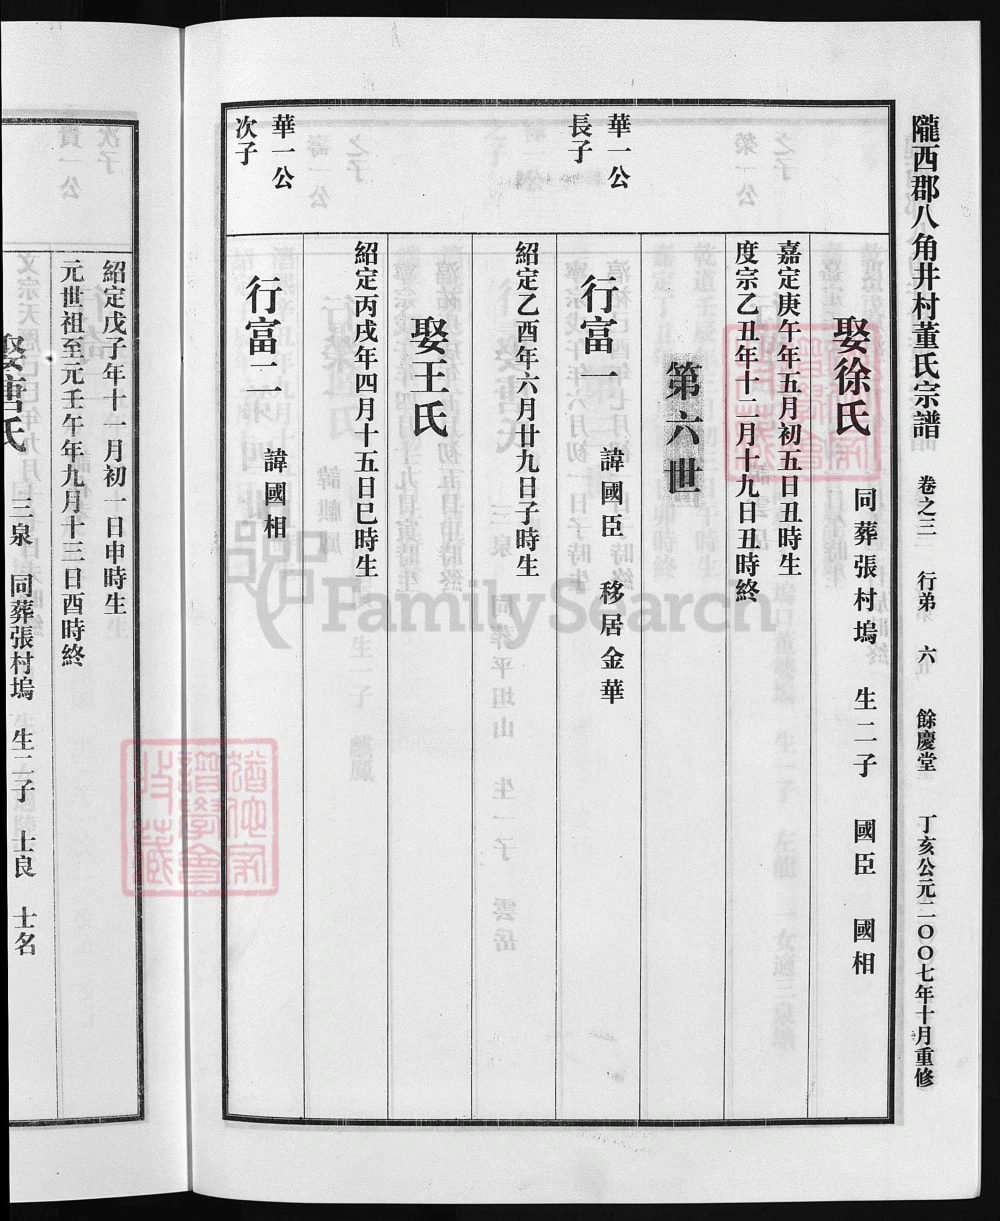 隴西郡八角井村董氏宗譜 卷之三 行弟 六 餘慶堂 丁亥公元二〇〇七年十月重修
娶徐氏 同葬張村塢 生二子 國臣 國相
嘉定庚午年五月初五日丑時生
度宗乙丑年十二月十九日丑時終
第六世
華一公
長子
行富一 諱國臣 移居金華
紹定乙酉年六月廿九日子時生
娶王氏
紹定丙戌年四月十五日巳時生
華一公
次子
行富二 諱國相
紹定戊子年十一月初一日申時生
元世祖至元壬午年九月十三日酉時終
娶唐氏 三泉 同葬張村塢 生二子 士良 士名
FamilySearch